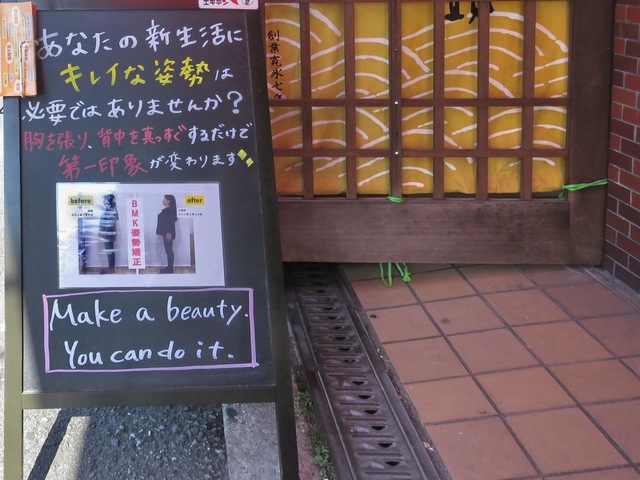 あなたの新生活に
キレイな姿勢は
必要ではありませんか?
胸を張り、背中を真っすぐするだけで
第一印象が変わります
before
after
BMK姿勢矯正
Make a beauty.
You can do it.
創業寛永七年